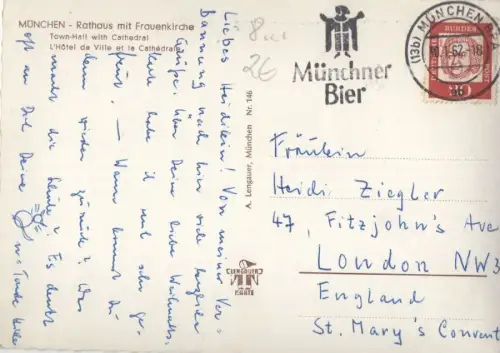 MÜNCHEN - Rathaus mit Frauenkirche
Town-Hall with Cathedral
L'Hôtel de Ville et la Cathédrale
Liebes Heidilein! Von meiner Ver-
bannung nach hier viele herzliche
Grüße. Über Deine liebe Weihnachts-
karte habe ich mich sehr ge-
freut. — Wann kommst Du
denn wieder zurück? Was
macht die Schule? Es denkt
oft an Dich Deine
Tante
A. Lengauer, München Nr. 146
LENGAUER
KARTE
26
Münchner
Bier
(13b) MÜNCHEN
.1.62.-18
DEUTSCHE BUNDESPOST
Fräulein
Heidi Ziegler
47, Fitzjohn's Ave
London NW3
England
St. Mary's Convent